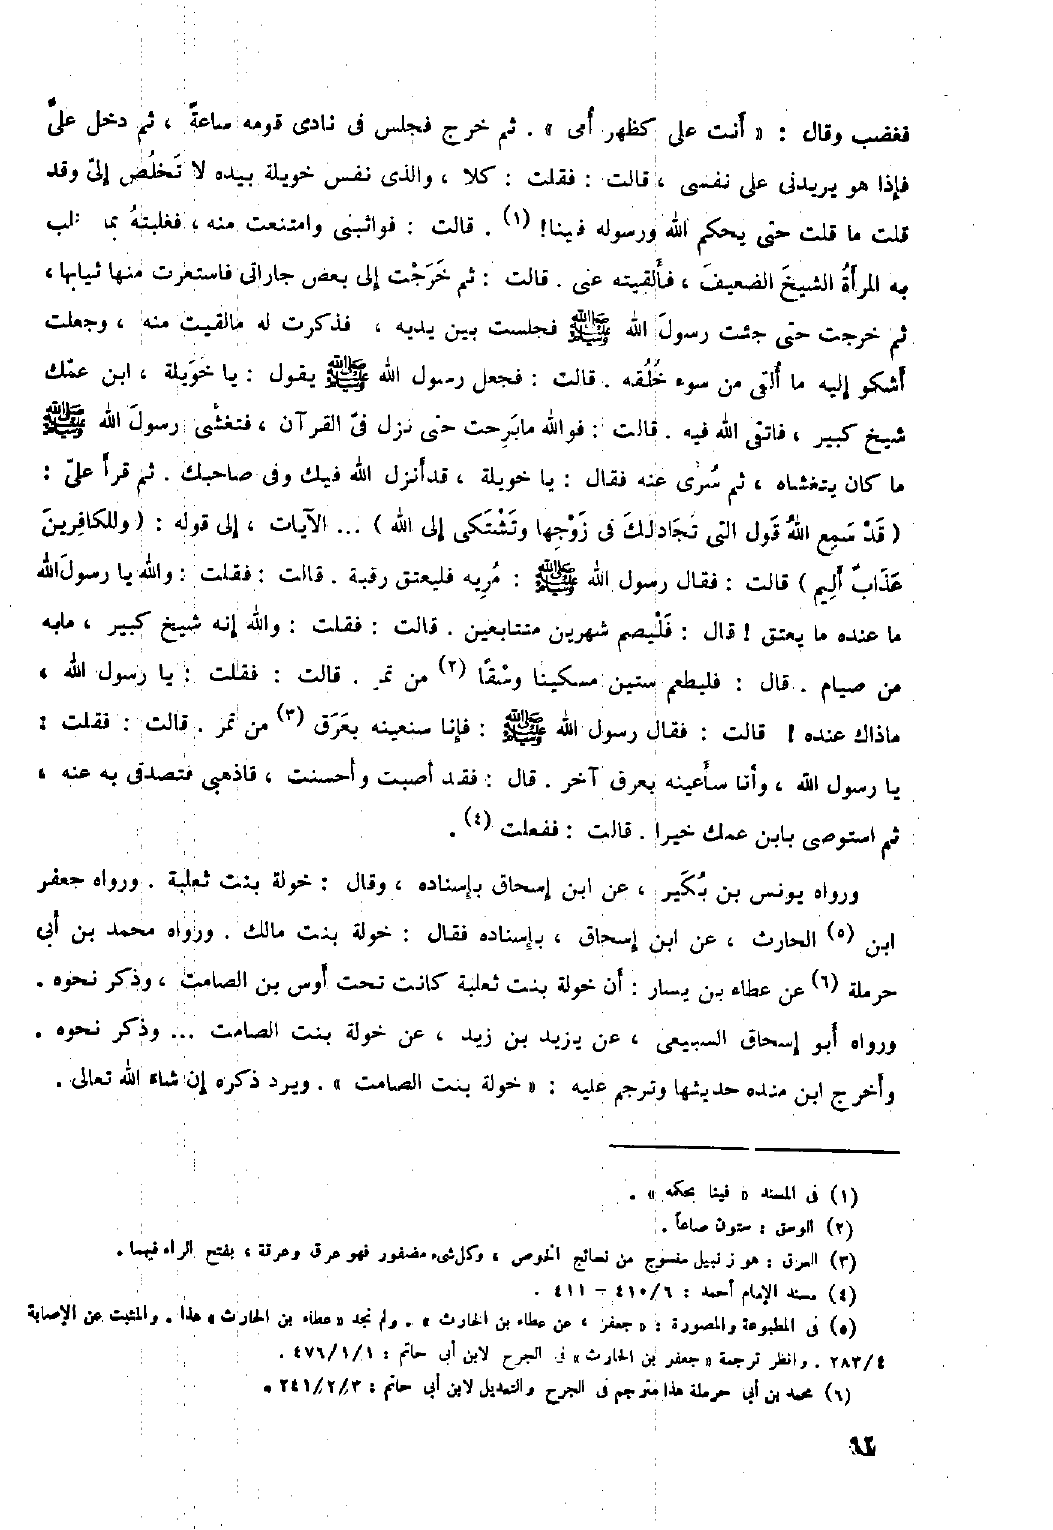 فغضب وقال : « أنت على كظهر أمى » . ثم خرج فجلس فى نادى قومه ساعةً ، ثم دخل علىَّ
فإذا هو يريدنى على نفسى ، قالت : فقلت : كلا ، والذى نفس خويلة بيده لا تَخلُص إلىّ وقد
قلت ما قلت حتى يحكم الله ورسوله فينا! (١) . قالت : فواثبنى وامتنعت منه ، فغلبتهُ بما تغلب
به المرأةُ الشيخَ الضعيفَ ، فأَلقيته عنى . قالت : ثم خَرَجْت إلى بعض جاراتى فاستعرت منها ثيابها ،
ثم خرجت حتى جئت رسولَ الله ﷺ فجلست بين يديه ، فذكرت له مالقيت منه ، وجعلت
أشكو إليه ما أُلقى من سوء خُلُقه . قالت : فجعل رسول الله ﷺ يقول : يا خوَيلة ، ابن عمّك
شيخ كبير ، فاتقى الله فيه . قالت : فوالله مابَرِحت حتى نزل فىّ القرآن ، فتغشّى رسولَ الله ﷺ
ما كان يتغشاه ، ثم سُرِّى عنه فقال : يا خويلة ، قدأنزل الله فيك وفى صاحبك . ثم قرأ علىّ :
( قَدْ سَمِع اللهُ قَول التى تُجَادلكَ فى زَوْجِها وتَشْتَكى إلى الله ) ... الآيات ، إلى قوله : ( وللكافِرينَ
عَذَابٌ أَلِيم ) قالت : فقال رسول الله ﷺ : مُرِيه فليعتق رقبة . قالت : فقلت : والله يا رسولَ الله
ما عنده ما يعتق ! قال : فَلْيصم شهرين متتابعين . قالت : فقلت : والله إنه شيخ كبير ، مابه
من صيام . قال : فليطعم ستين مسكينا وسْقًا (٢) من تمر . قالت : فقلت : يا رسول الله ،
ماذاك عنده ! قالت : فقال رسول الله ﷺ : فإنا سنعينه بعَرَق (٣) من تمر . قالت : فقلت :
يا رسول الله ، وأنا سأَعينه بعرق آخر . قال : فقد أصبت وأحسنت ، فاذهبى فتصدقى به عنه ،
ثم استوصى بابن عمك خيرا . قالت : ففعلت (٤) .
ورواه يونس بن بُكَير ، عن ابن إسحاق بإسناده ، وقال : خولة بنت ثعلبة . ورواه جعفر
ابن (٥) الحارث ، عن ابن إسحاق ، بإسناده فقال : خولة بنت مالك . ورواه محمد بن أبى
حرملة (٦) عن عطاء بن يسار : أن خولة بنت ثعلبة كانت تحت أوس بن الصامت ، وذكر نحوه .
ورواه أبو إسحاق السبيعى ، عن يزيد بن زيد ، عن خولة بنت الصامت ... وذكر نحوه .
وأخرج ابن منده حديثها وترجم عليه : « خولة بنت الصامت » . ويرد ذكره إن شاء الله تعالى .
(١) فى المسند « فينا بحكمه » .
(٢) الوسق : ستون صاعاً .
(٣) العرق : هو زنبيل منسوج من نسائج الخوص ، وكل شىء مضفور فهو عرق وعرقة ، بفتح الراء فيهما .
(٤) مسند الإمام أحمد : ٦/ ٤١٠ - ٤١١ .
(٥) فى المطبوعة والمصورة : « جعفر ، عن عطاء بن الحارث » . ولم نجد « عطاء بن الحارث » هذا . والمثبت عن الإصابة
٤/ ٢٨٣ . وانظر ترجمة « جعفر بن الحارث » فى الجرح لابن أبى حاتم : ١/ ١/ ٤٧٦ .
(٦) محمد بن أبى حرملة هذا مترجم فى الجرح والتعديل لابن أبى حاتم : ٣/ ٢/ ٢٤١ .
٩٢